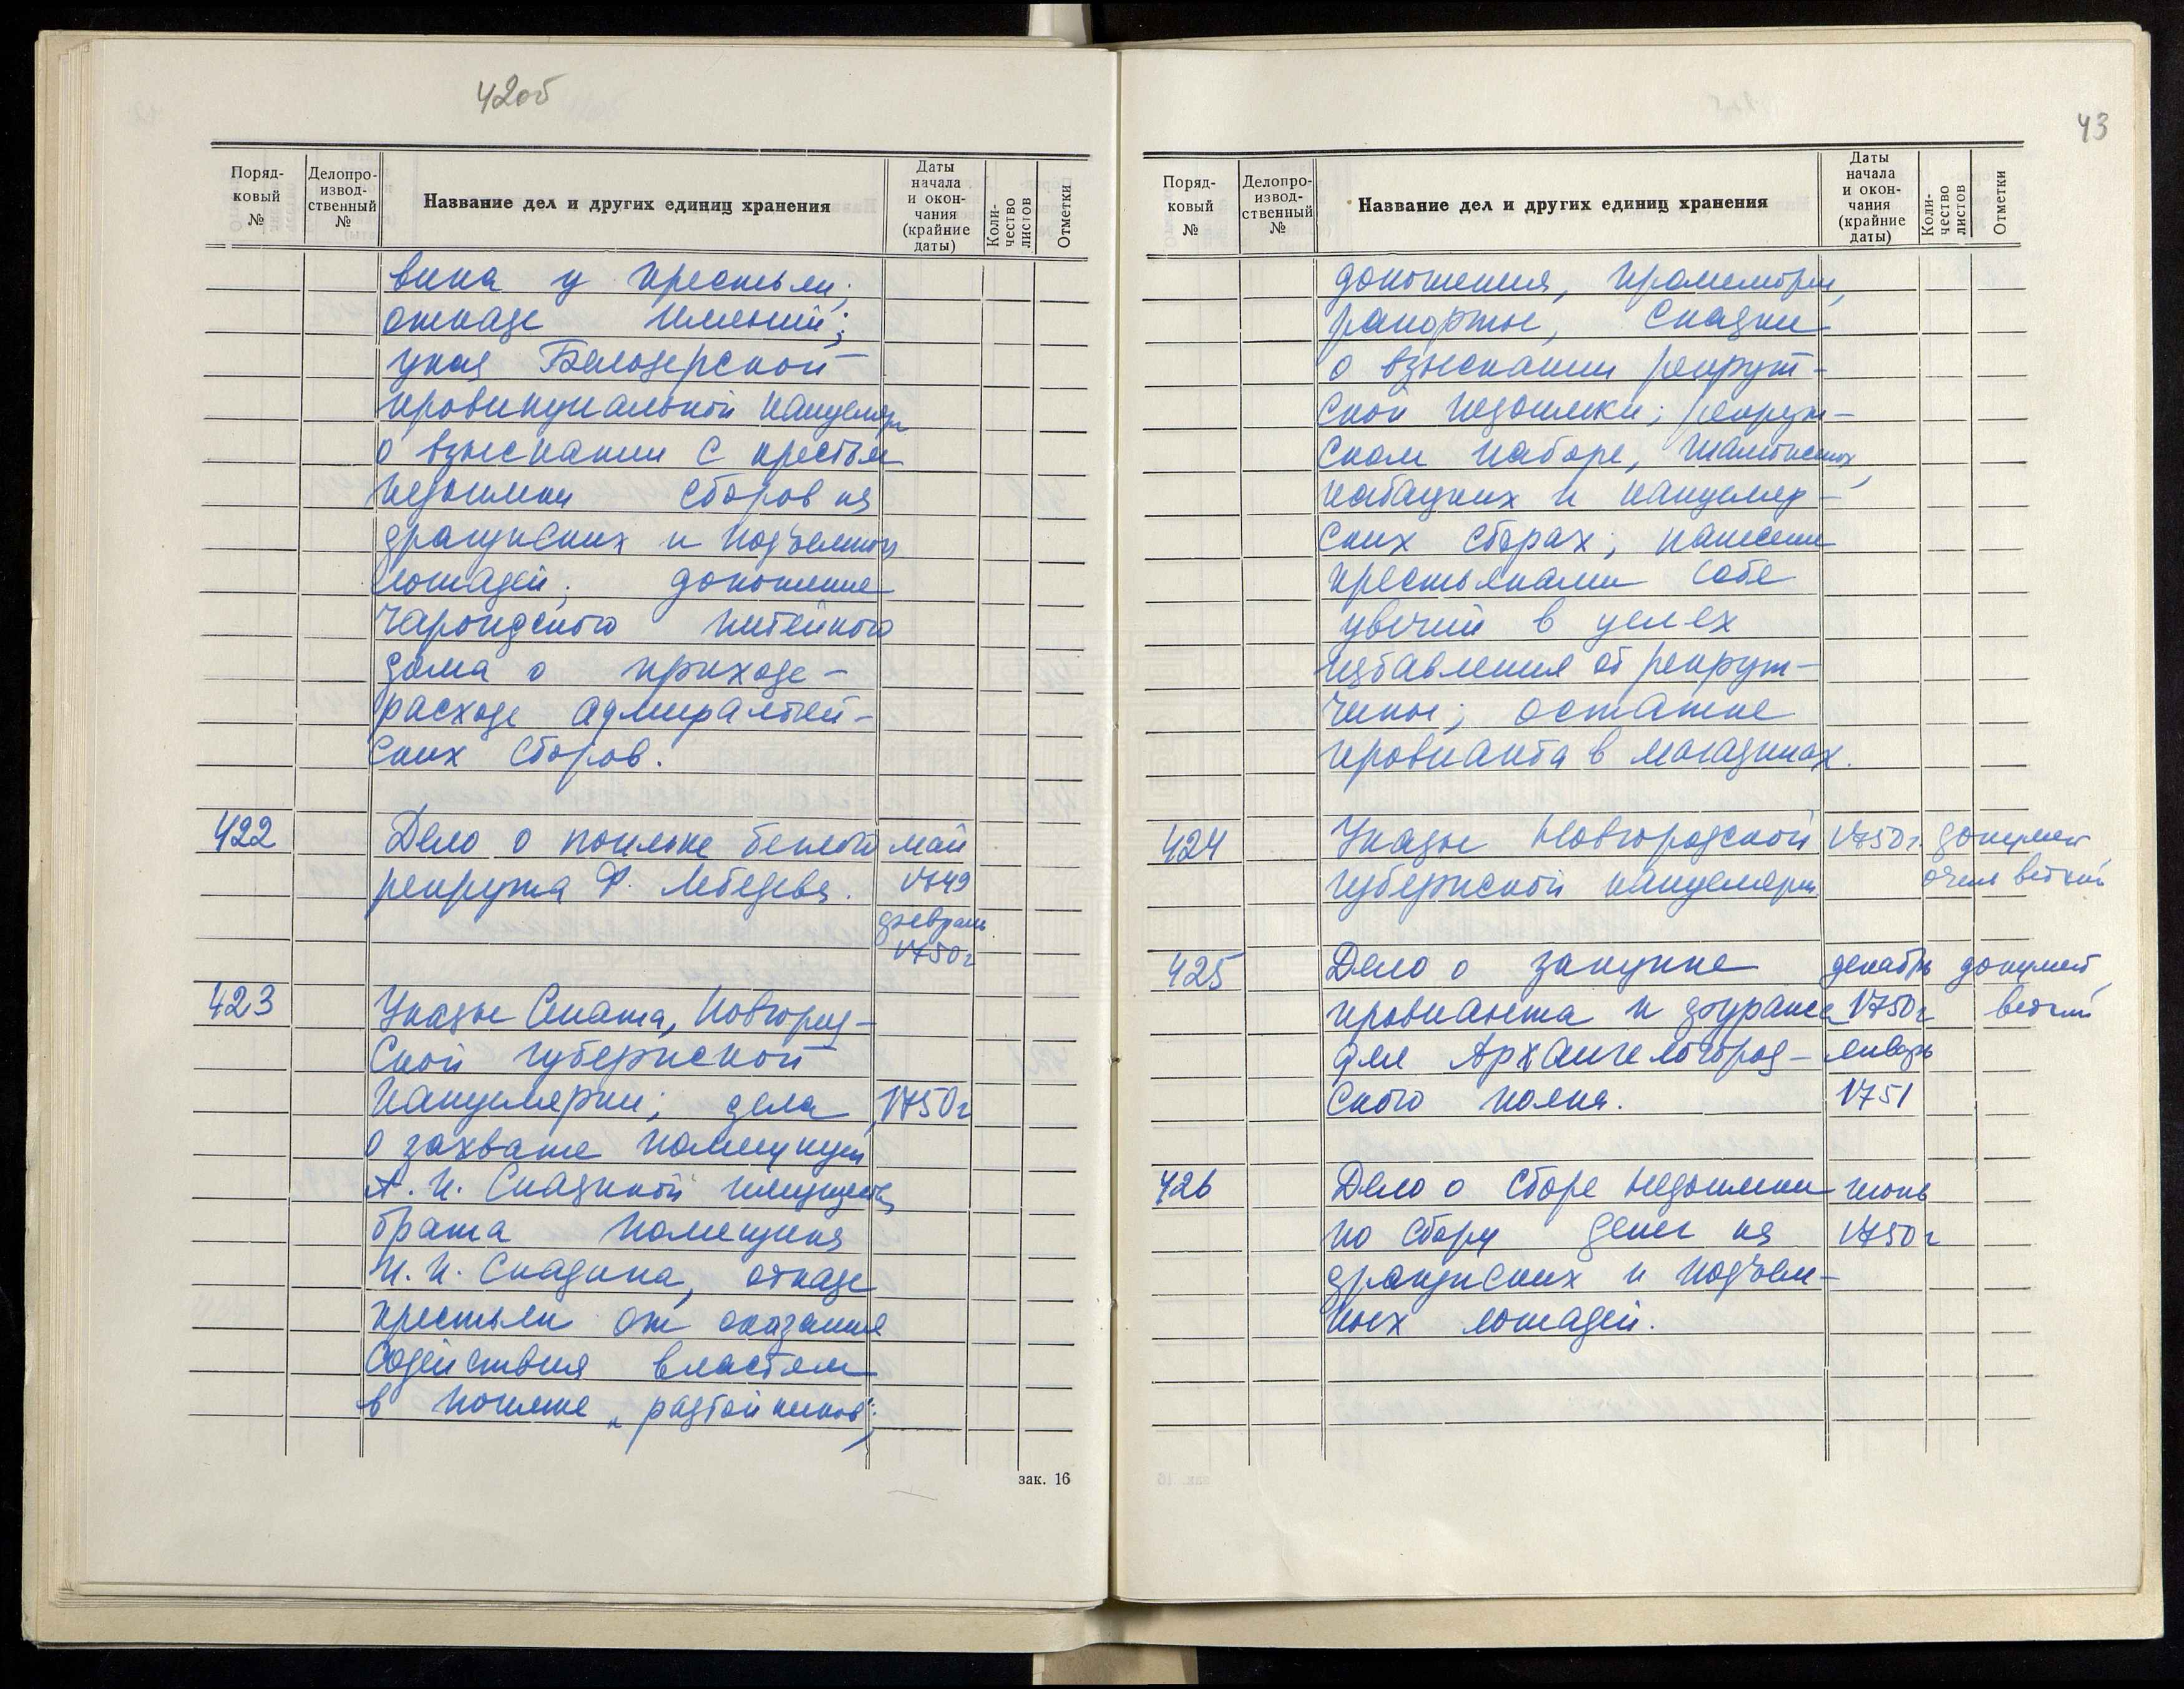 42об
Поряд-
ковый
№
Делопро-
извод-
ственный
№
Название дел и других единиц хранения
Даты
начала
и окон-
чания
(крайние
даты)
Коли-
чество
листов
Отметки
вина у крестьян;
отказе имений;
указ Белозерской
провинциальной канцеляр
о взыскании с крестьян
недоимки сборов на
драгунских и подъемных
лошадей; доношение
Чарондского питейного
дома о приходе-
расходе адмиралтей-
ских сборов.
422
Дело о поимке беглого
май
рекрута Ф. Лебедева.
1749
февраль
1750г
423
Указы Сената, Новгород-
ской губернской
канцелярии; дела
1750г
о захвате помещицей
А. И. Скадиной имущества
брата помещика
И. И. Скадина, отказе
крестьян от оказания
содействия властям
в поимке „разбойников";
зак. 16
43
Поряд-
ковый
№
Делопро-
извод-
ственный
№
Название дел и других единиц хранения
Даты
начала
и окон-
чания
(крайние
даты)
Коли-
чество
листов
Отметки
доношения, промемории,
рапорты, сказки
о взыскании рекрут-
ской недоимки; рекрут-
ском наборе, таможенных,
кабацких и канцеляр-
ских сборах; нанесении
крестьянами себе
увечий в целях
избавления от рекрут-
чины; остатке
провианта в магазинах.
424
Указы Новгородской
1750г.
документ
губернской канцелярии
очень ветхий
425
Дело о закупке
декабрь
документ
провианта и фуража
1750г
ветхий
для Архангелогород-
январь
ского полка.
1751
426
Дело о сборе недоимки
июнь
по сбору денег на
1750г
драгунских и подъем-
ных лошадей.